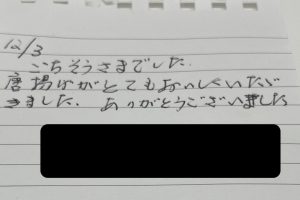 12/3
ごちそうさまでした.
唐揚げがとてもおいしくいただ
きました. ありがとうございました